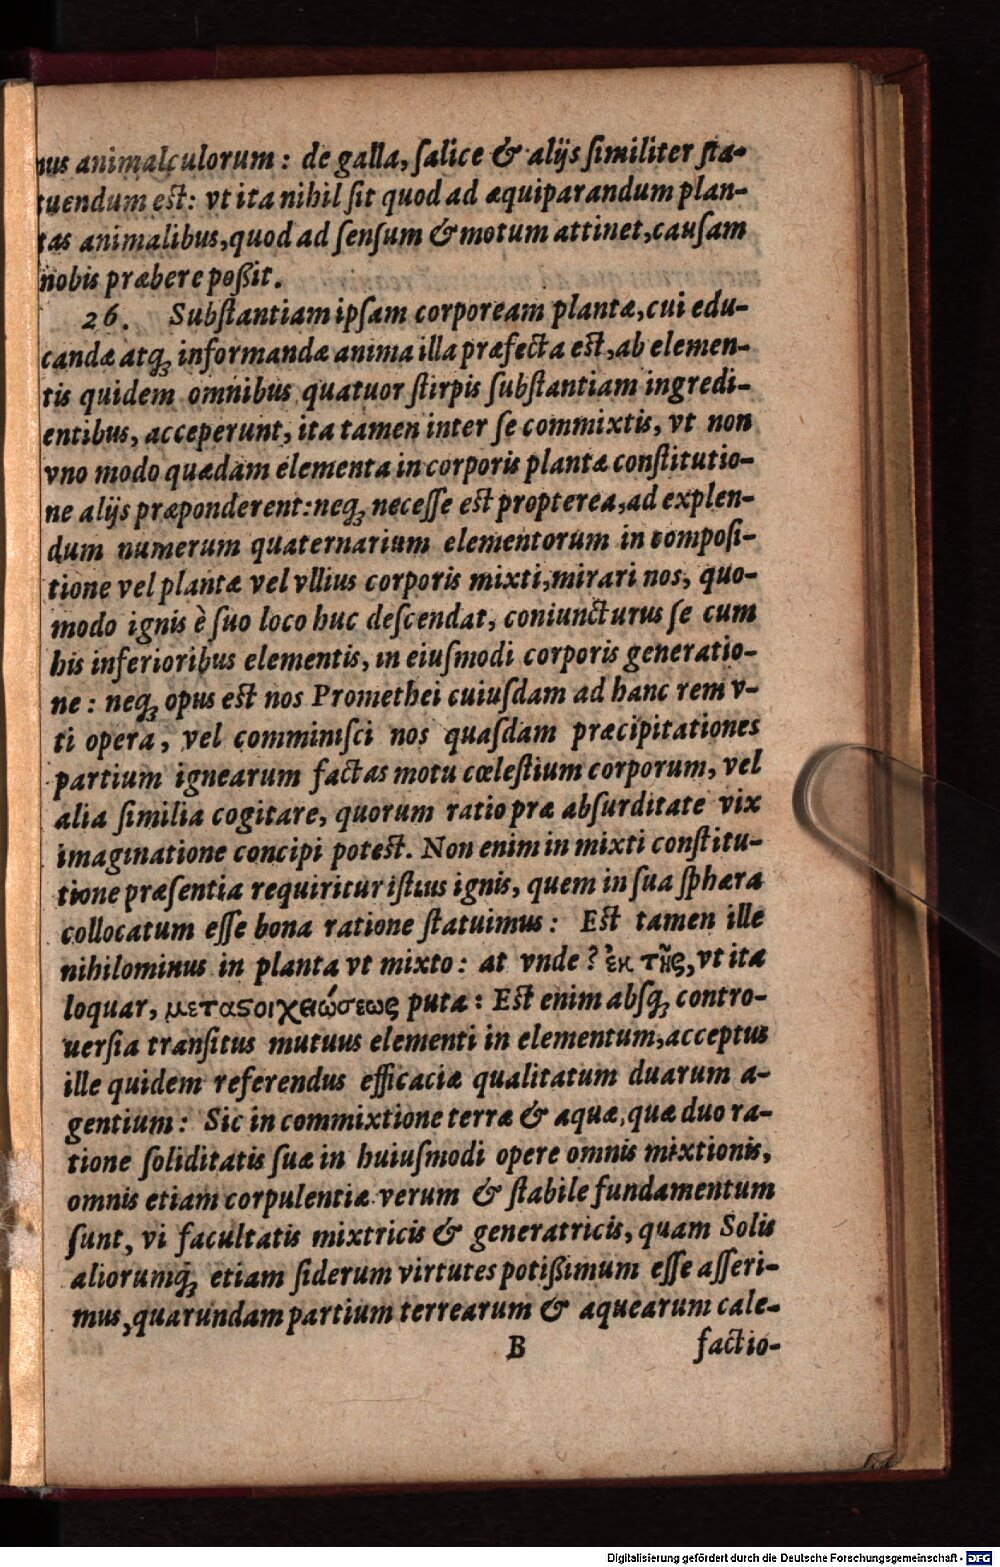 nus animalculorum: de galla, ſalice & alijs ſimiliter ſta-
tuendum eſt: vt ita nihil ſit quod ad æquiparandum plan-
tas animalibus, quod ad ſenſum & motum attinet, cauſam
nobis præbere poßit.
26. Subſtantiam ipſam corpoream plantæ, cui edu-
candæ atq; informandæ anima illa præfecta eſt, ab elemen-
tis quidem omnibus quatuor ſtirpis ſubſtantiam ingredi-
entibus, acceperunt, ita tamen inter ſe commixtis, vt non
vno modo quædam elementa in corporis plantæ conſtitutio-
ne alijs præponderent: neq; neceſſe eſt propterea, ad explen-
dum numerum quaternarium elementorum in compoſi-
tione vel plantæ vel vllius corporis mixti, mirari nos, quo-
modo ignis è ſuo loco huc deſcendat, coniuncturus ſe cum
his inferioribus elementis, in eiuſmodi corporis generatio-
ne: neq; opus eſt nos Promethei cuiuſdam ad hanc rem v-
ti opera, vel comminiſci nos quaſdam præcipitationes
partium ignearum factas motu cœleſtium corporum, vel
alia ſimilia cogitare, quorum ratio præ abſurditate vix
imaginatione concipi poteſt. Non enim in mixti conſtitu-
tione præſentia requiritur iſtius ignis, quem in ſua ſphæra
collocatum eſſe bona ratione ſtatuimus: Eſt tamen ille
nihilominus in planta vt mixto: at vnde? ἐκ τῆς, vt ita
loquar, μεταϛοιχειώσεως puta: Eſt enim abſq; contro-
uerſia tranſitus mutuus elementi in elementum, acceptus
ille quidem referendus efficaciæ qualitatum duarum a-
gentium: Sic in commixtione terræ & aquæ, quæ duo ra-
tione ſoliditatis ſuæ in huiuſmodi opere omnis mixtionis,
omnis etiam corpulentiæ verum & ſtabile fundamentum
ſunt, vi facultatis mixtricis & generatricis, quam Solis
aliorumq; etiam ſiderum virtutes potißimum eſſe aſſeri-
mus, quarundam partium terrearum & aquearum cale-
B factio-
Digitalisierung gefördert durch die Deutsche Forschungsgemeinschaft - DFG